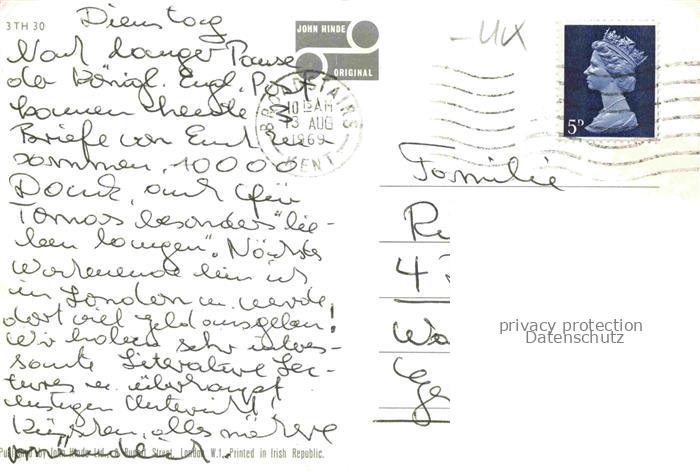 Dienstag
3TH 30
JOHN HINDE
ORIGINAL
Nach langer Pause
der Königl. Engl. Post
kamen heute
Briefe von Euch zu
sammen, 10000
Dank, auch für
Tomas besonders "lie-
ben langen". Nächstes
Wochenende bin ich
in London u. werde
dort viel Geld ausgeben!
Wir haben sehr interes-
sante Literature Lec-
tures u. überhaupt
lustigen Unterricht!
alles nähere
mündlich.
Published by John Hinde Ltd., Street, London, W.1. Printed in Irish Republic.
BROADSTAIRS
10 15 AM
13 AUG
1969
KENT
5D
Familie
privacy protection
Datenschutz